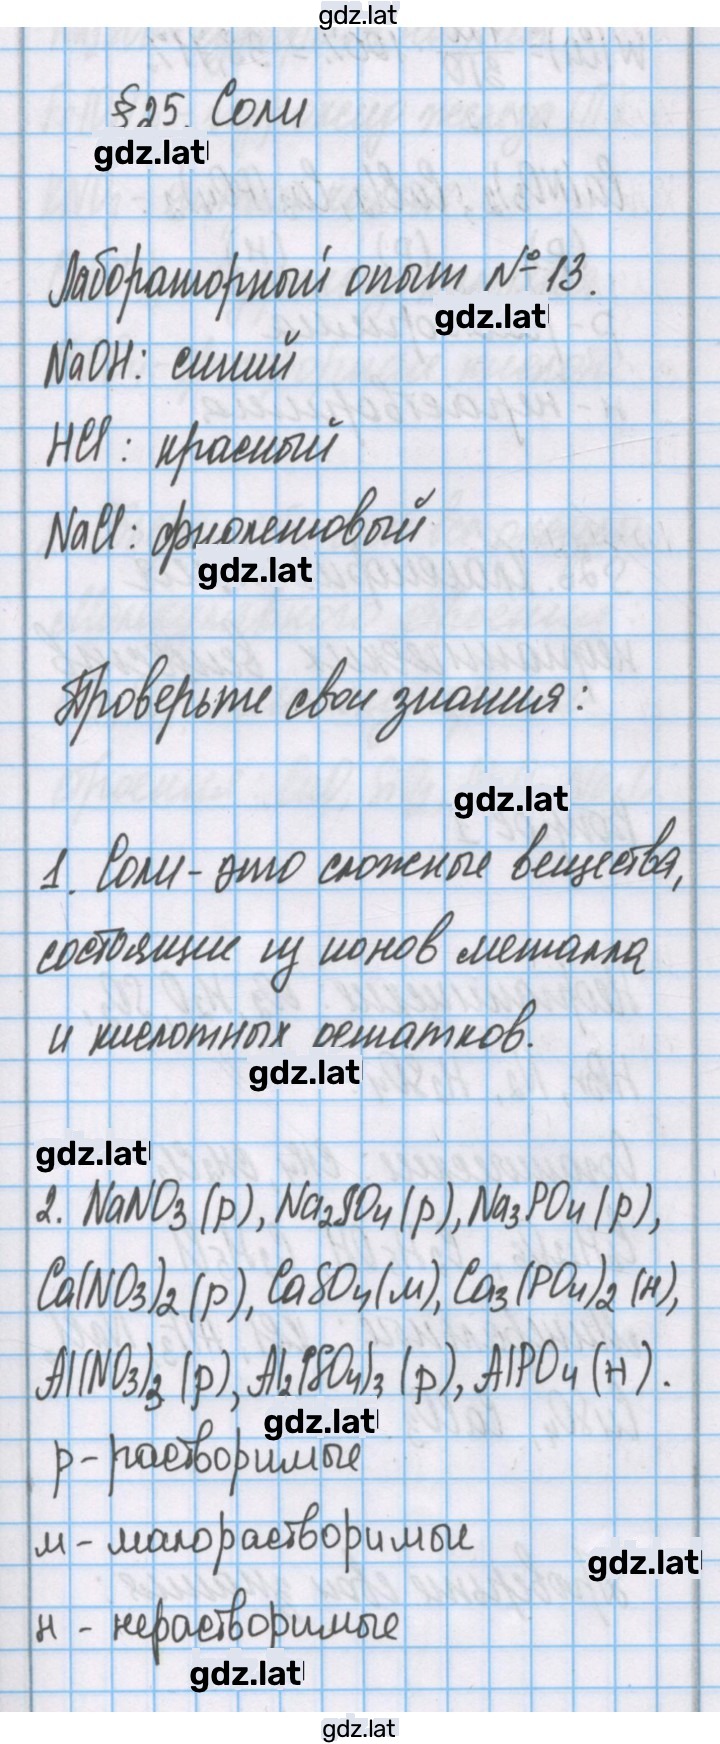 gdz.lat
§25. Соли
gdz.lat
Лабораторный опыт №13.
gdz.lat
NaOH: синий
HCl: красный
NaCl: фиолетовый
gdz.lat
Проверьте свои знания:
gdz.lat
1. Соли - это сложные вещества,
состоящие из ионов металла
и кислотных остатков.
gdz.lat
gdz.lat
2. NaNO3 (р), Na2SO4 (р), Na3PO4 (р),
Ca(NO3)2 (р), CaSO4 (м), Ca3(PO4)2 (н),
Al(NO3)3 (р), Al2(SO4)3 (р), AlPO4 (н).
gdz.lat
р - растворимые
м - малорастворимые
gdz.lat
н - нерастворимые
gdz.lat
gdz.lat